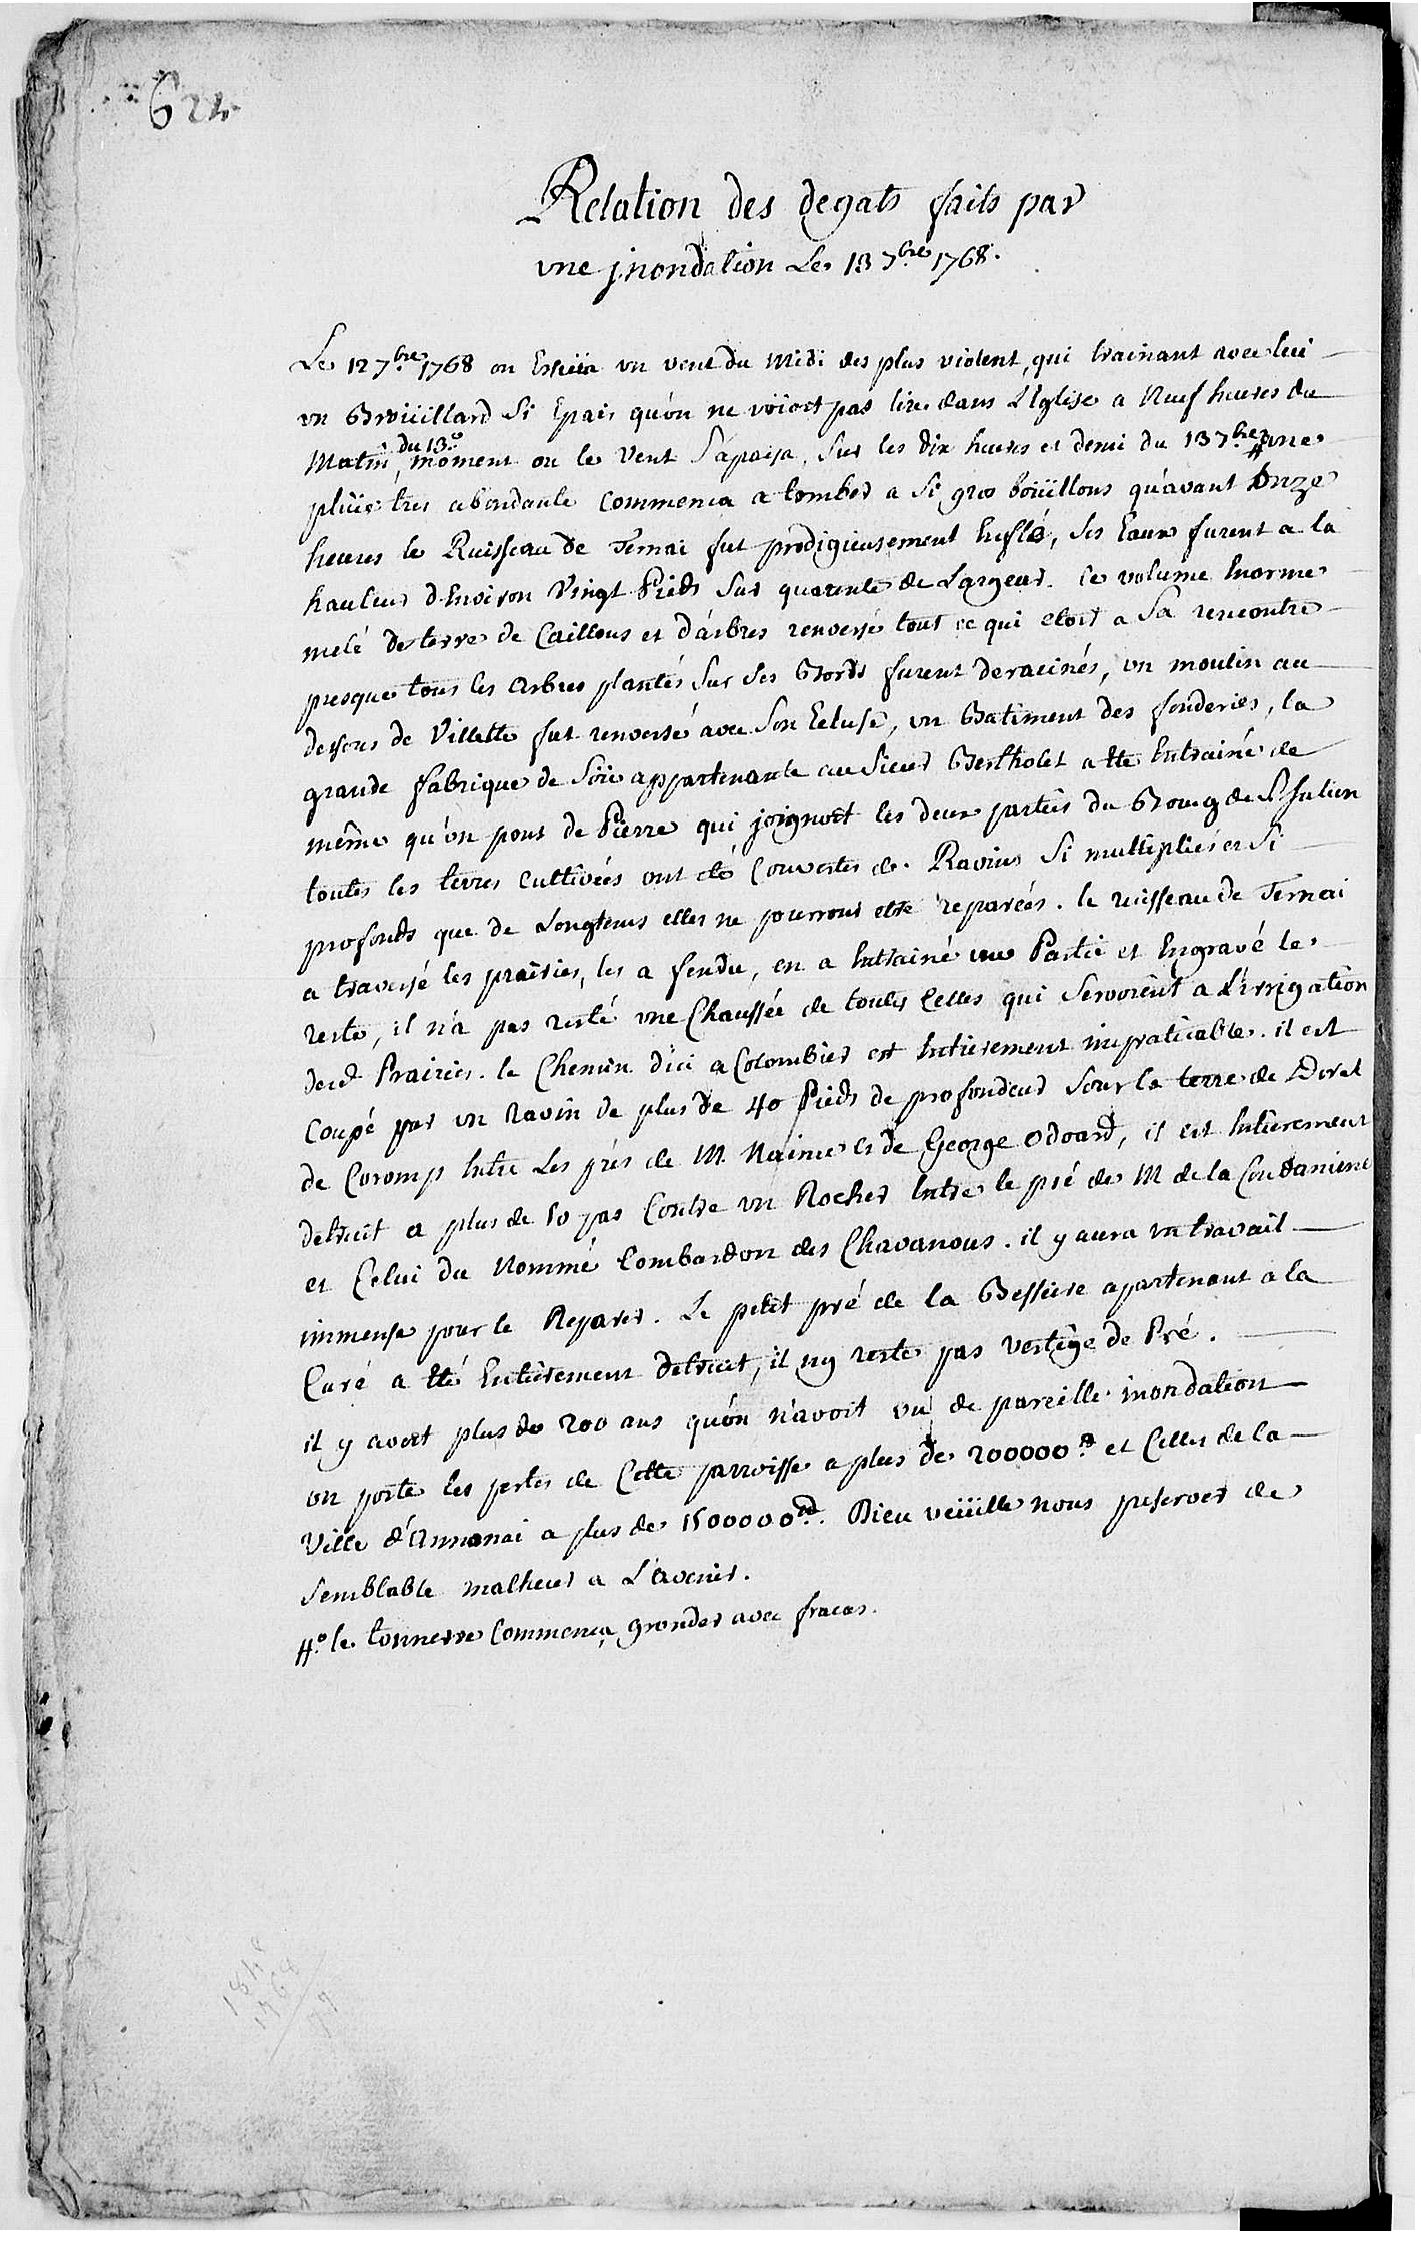 624
Relation des degats faits par
une jnondation Le 13 7bre 1768.
Le 12 7bre 1768 on Essuia un vent du Midi des plus violent, qui trainant avec lui
un Broüillard Si Epais qu'on ne voioit pas lire dans L'Eglise a Neuf heures du
Matin du 13e, moment ou le Vent S'apaisa, Sur les dix heures et demi du 13 7bre # une
plüie tres abondante commenca a tomber a Si gros boüillons qu'avant Onze
heures le Ruisseau de Ternai fut prodigieusement Enflé, Ses Eaux furent a la
hauteur d'Environ Vingt Pieds Sur quarente de Largeur. ce volume Enorme
melé de terre de Cailloux et d'arbres renversé tout ce qui etoit a Sa rencontre
presque tous les Arbres plantés Sur Ses Bords furent deracinés, un moulin au
dessous de Villette fut renversé avec Son Ecluse, un Batiment des fonderies, la
grande fabrique de Soïe appartenante au Sieur Bertholet a ete Entrainé de
même qu'un pont de Pierre qui joignoit les deux parties du Bourg de St Julien
toutes les terres cultivées ont eté Couvertes de Ravins Si multipliés et Si
profonds que de Longtems elles ne pourront etre reparées. le ruisseau de Ternai
a traversé les prairies, les a fendu, en a Entrainé une Partie et Engravé le
reste, il n'a pas resté une Chaussée de toutes Celles qui Servoient a L'irrigation
desd Prairies. le Chemin d'ici a Colombier est Entierement impraticable. il est
Coupé par un ravin de plus de 40 Pieds de profondeur Sour la terre de Doret
de Coromp Entre Les prés de M. et de George Odoard, il est Entierement
detruit a plus de 50 pas Contre un Rocher Entre le pré de M de la Condaniere
et Celui du Nommé Lombardon des Chavanous. il y aura un travail
immense pour le Reparer. Le petit pré de la Bessiere apartenant a la
Curé a eté Entierement detruit, il ny reste pas vestige de Pré.
il y avoit plus de 200 ans qu'on n'avoit vu de pareille inondation
on porte les pertes de Cette parroisse a plus de 200000tt et Celles de la
Ville d'Annonai a plus de 1500000tt. Dieu veüille nous preserver de
Semblable malheur a L'avenir.
#o le tonnerre Commença gronder avec fracas.
1768